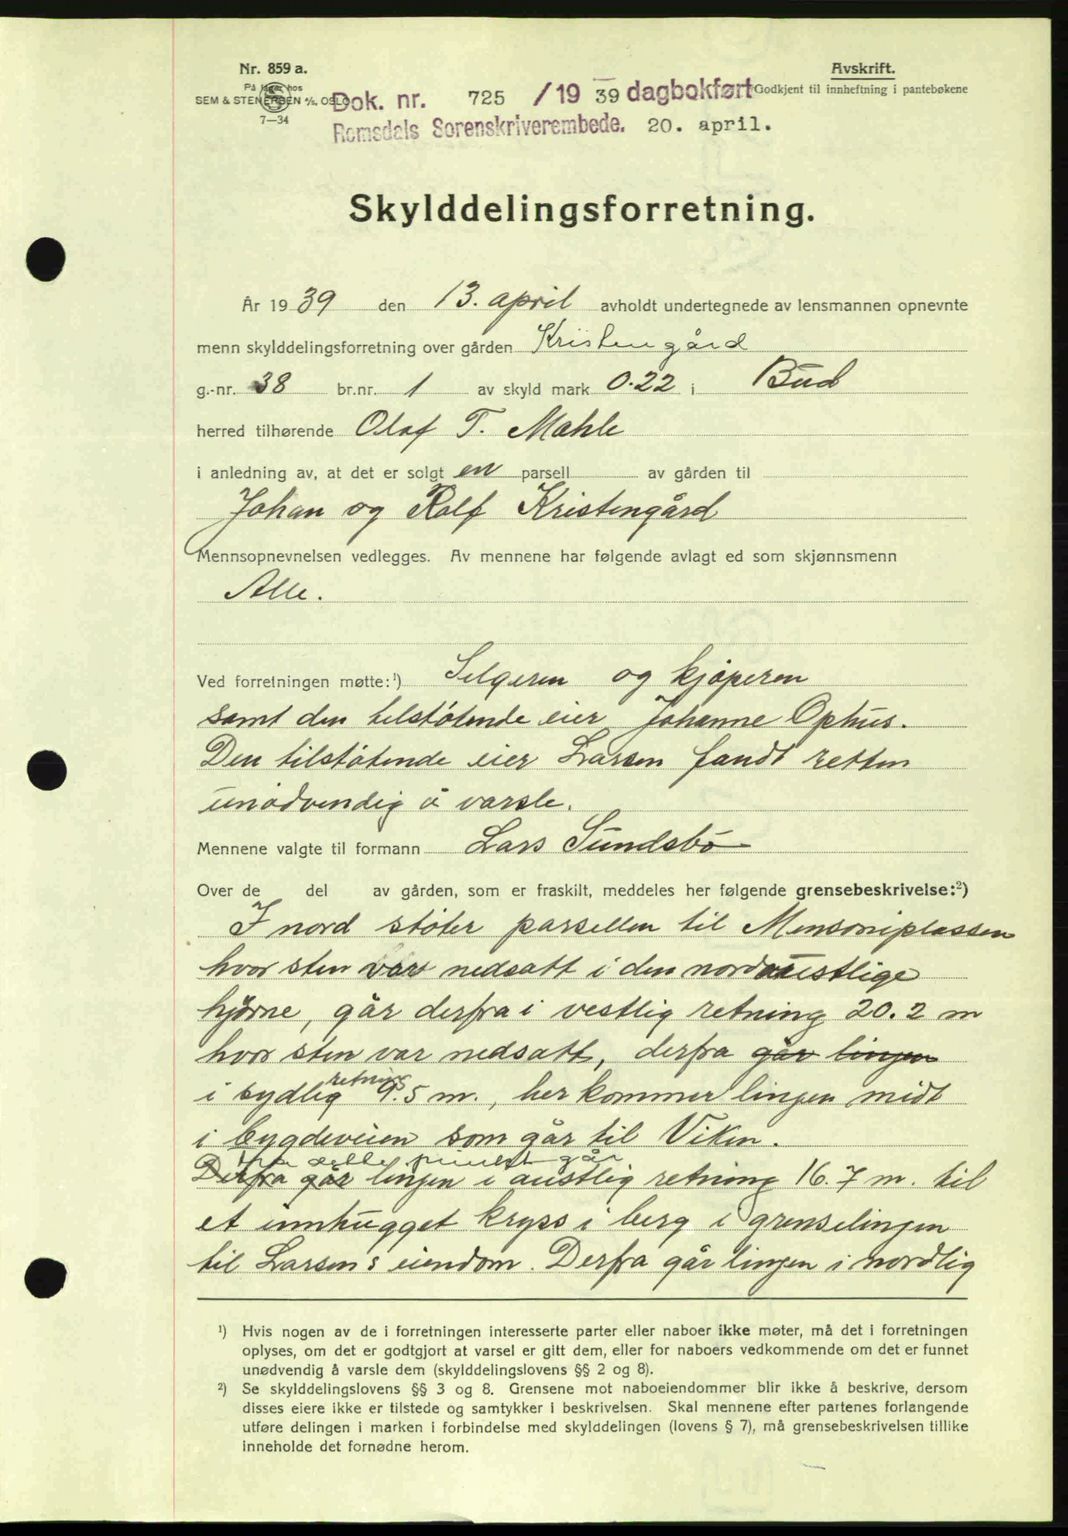 Nr. 859 a.
På lager hos
SEM & STENERSEN A/S, OSLO
7—34
Avskrift.
Godkjent til innheftning i pantebøkene
Dok. nr. 725 /19 39 dagbokført
Romsdals Sorenskriverembede. 20. april.
Skylddelingsforretning.
År 19 39 den 13. april avholdt undertegnede av lensmannen opnevnte
menn skylddelingsforretning over gården Kristengård
g.-nr. 38 br.nr. 1 av skyld mark 0.22 i Bud
herred tilhørende Olaf T. Mahle
i anledning av, at det er solgt en parsell av gården til
Johan og Rolf Kristengård
Mennsopnevnelsen vedlegges. Av mennene har følgende avlagt ed som skjønnsmenn
Alle.
Ved forretningen møtte:¹) Selgeren og kjøperen
samt den tilstøtende eier Johanne Ophus.
Den tilstøtende eier Larsen fandt retten
unødvendig å varsle.
Mennene valgte til formann Lars Sundsbø
Over de del av gården, som er fraskilt, meddeles her følgende grensebeskrivelse:²)
I nord støter parsellen til
hvor sten var nedsatt i den nordaustlige
hjørne, går derfra i vestlig retning 20.2 m
hvor sten var nedsatt, derfra går linjen
i sydlig retning 9.5 m., her kommer linjen midt
i bygdeveien som går til Viken.
fra dette punkt går
Derfra går linjen i austlig retning 16.7 m. til
et innhugget kryss i berg i grenselinjen
til Larsens eiendom. Derfra går linjen i nordlig
¹) Hvis nogen av de i forretningen interesserte parter eller naboer ikke møter, må det i forretningen
oplyses, om det er godtgjort at varsel er gitt dem, eller for naboers vedkommende om det er funnet
unødvendig å varsle dem (skylddelingslovens §§ 2 og 8).
²) Se skylddelingslovens §§ 3 og 8. Grensene mot naboeiendommer blir ikke å beskrive, dersom
disses eiere ikke er tilstede og samtykker i beskrivelsen. Skal mennene efter partenes forlangende
utføre delingen i marken i forbindelse med skylddelingen (lovens § 7), må grensebeskrivelsen tillike
inneholde det fornødne herom.